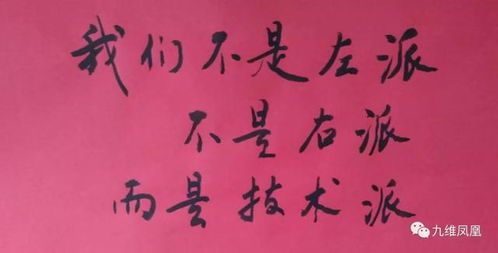 我们不是左派
不是右派
而是技术派
九维凤凰